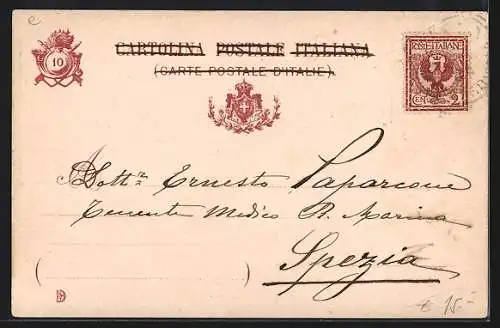 e
CARTOLINA POSTALE ITALIANA
(CARTE POSTALE D'ITALIE)
10
POSTE ITALIANE
CEN. 2
Dott.r Ernesto Paparcone
Tenente Medico R. Marina
Spezia
€ 15.-